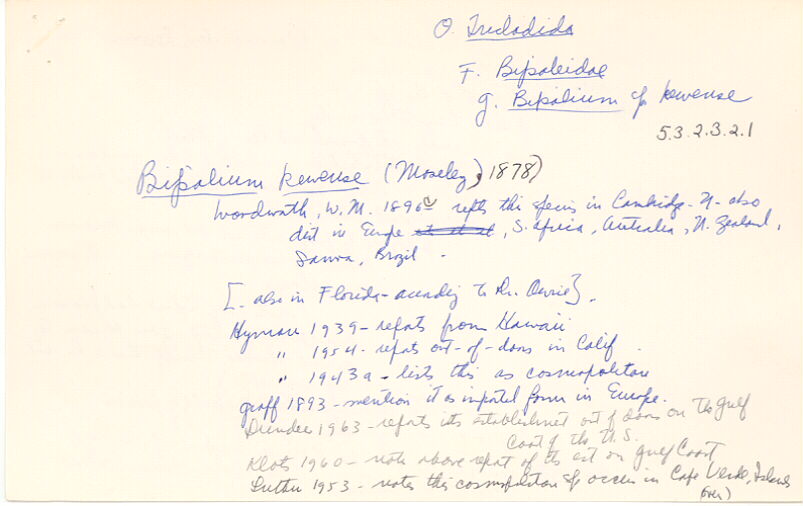 O. Tricladida
F. Bipaleidae
g. Bipalium sp kewense
5.3.2.3.2.1
Bipalium kewense (Moseley, 1878)
Wordwoth, W. M. 1896 repts this species in Cambridge - also
dist in Europe, S. Africa, Australia, N. Zealand,
Samoa, Brazil.
[- also in Florida - according to Dr. ].
Hyman 1939 - reports from Hawaii
" 1954 - repats out-of-doors in Calif.
" 1943a - lists this as cosmopolitan
Graff 1893 - mention it as imported form in Europe.
Dundee 1963 - reports its establishment out of doors on the Gulf
Coast of the U.S.
Klots 1960 - note above repat of its est on Gulf Coast
Luther 1953 - notes this cosmopolitan sp occurs in Cape Verde, Islands
(over)